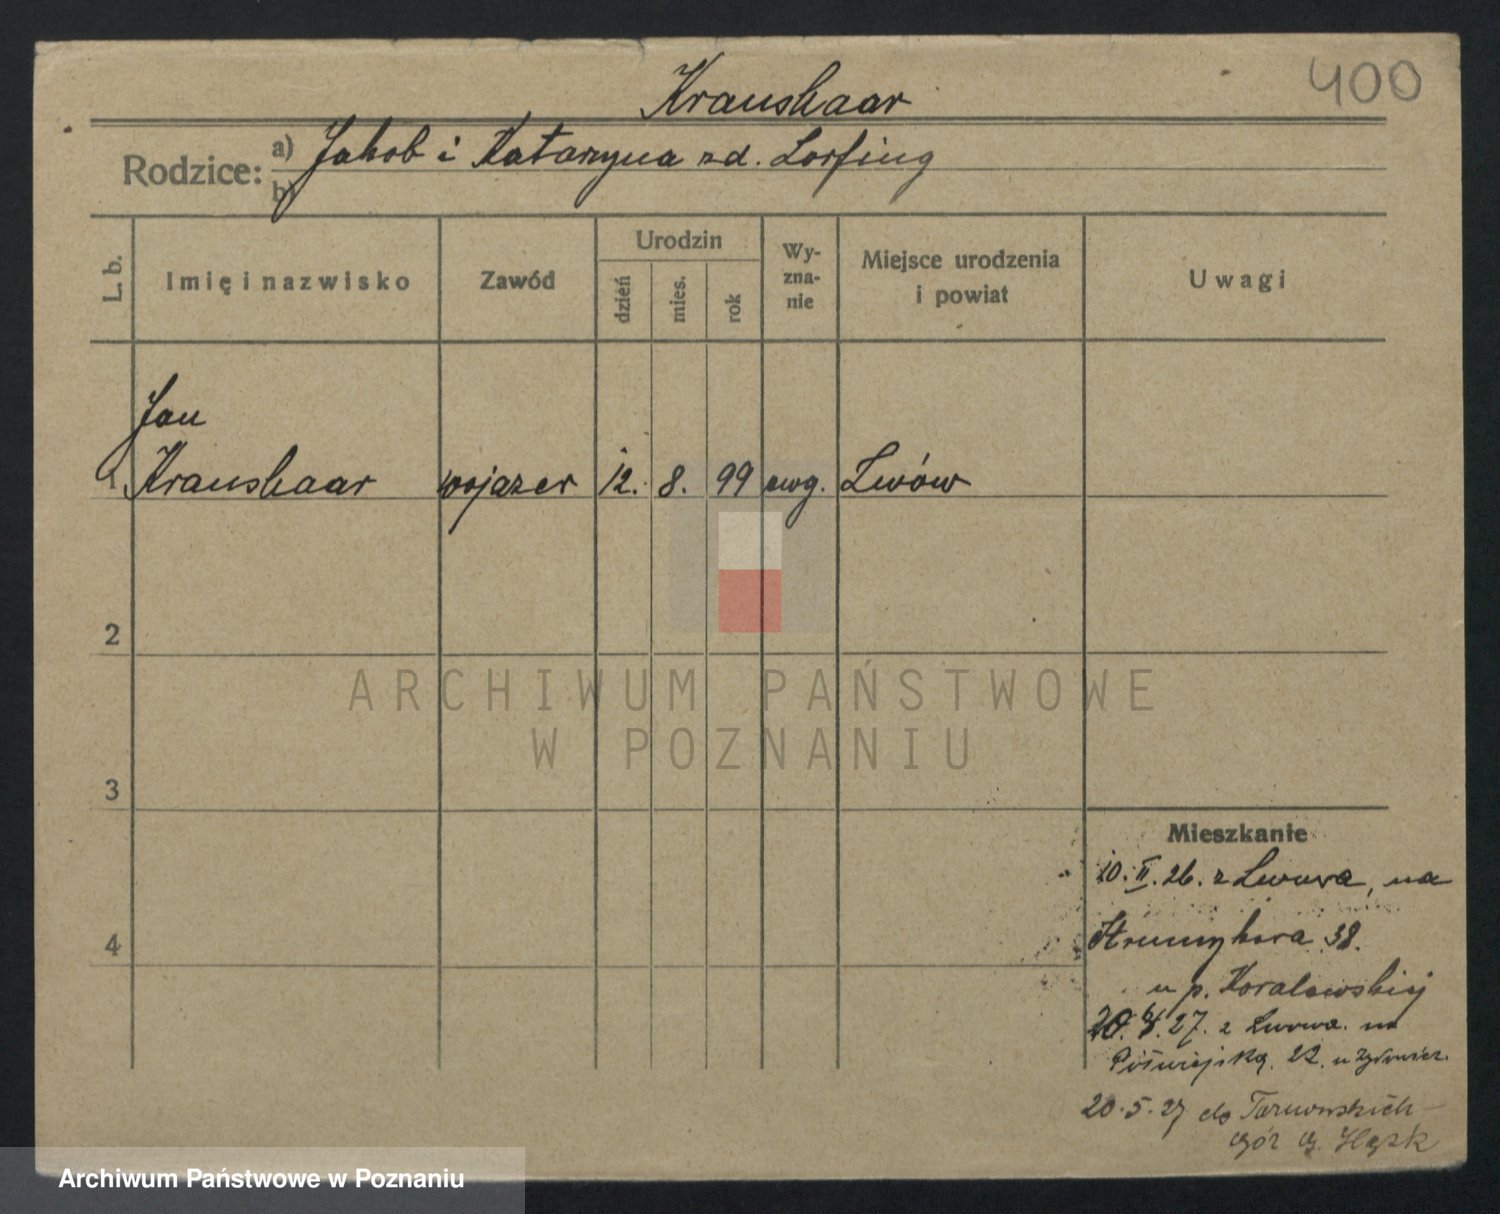 400
Kraushaar
Rodzice: a) Jakob i Katarzyna zd. Lorfing
b)
L. b. Imię i nazwisko Zawód Urodzin dzień mies. rok Wy-zna-nie Miejsce urodzenia i powiat Uwagi
Jan
1 Kraushaar wojazer 12. 8. 99 ewg. Lwów
2
ARCHIWUM PAŃSTWOWE
W POZNANIU
3
Mieszkanie
10.II.26. z Lwowa, na
4
Strumykowa 38.
u p. Koralewskiej
27. z Lwowa. na
22. u
20.5.27 do Tarnowskich
Gór G. Śląsk
Archiwum Państwowe w Poznaniu